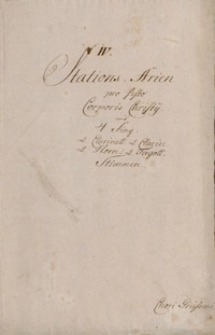 N IV.
Stations-Arien
pro festo
Corporis Christÿ
4 Sing
2 Clarinett 2 Clarin
2 Horn 2 Fagott
Stimmen
Chori